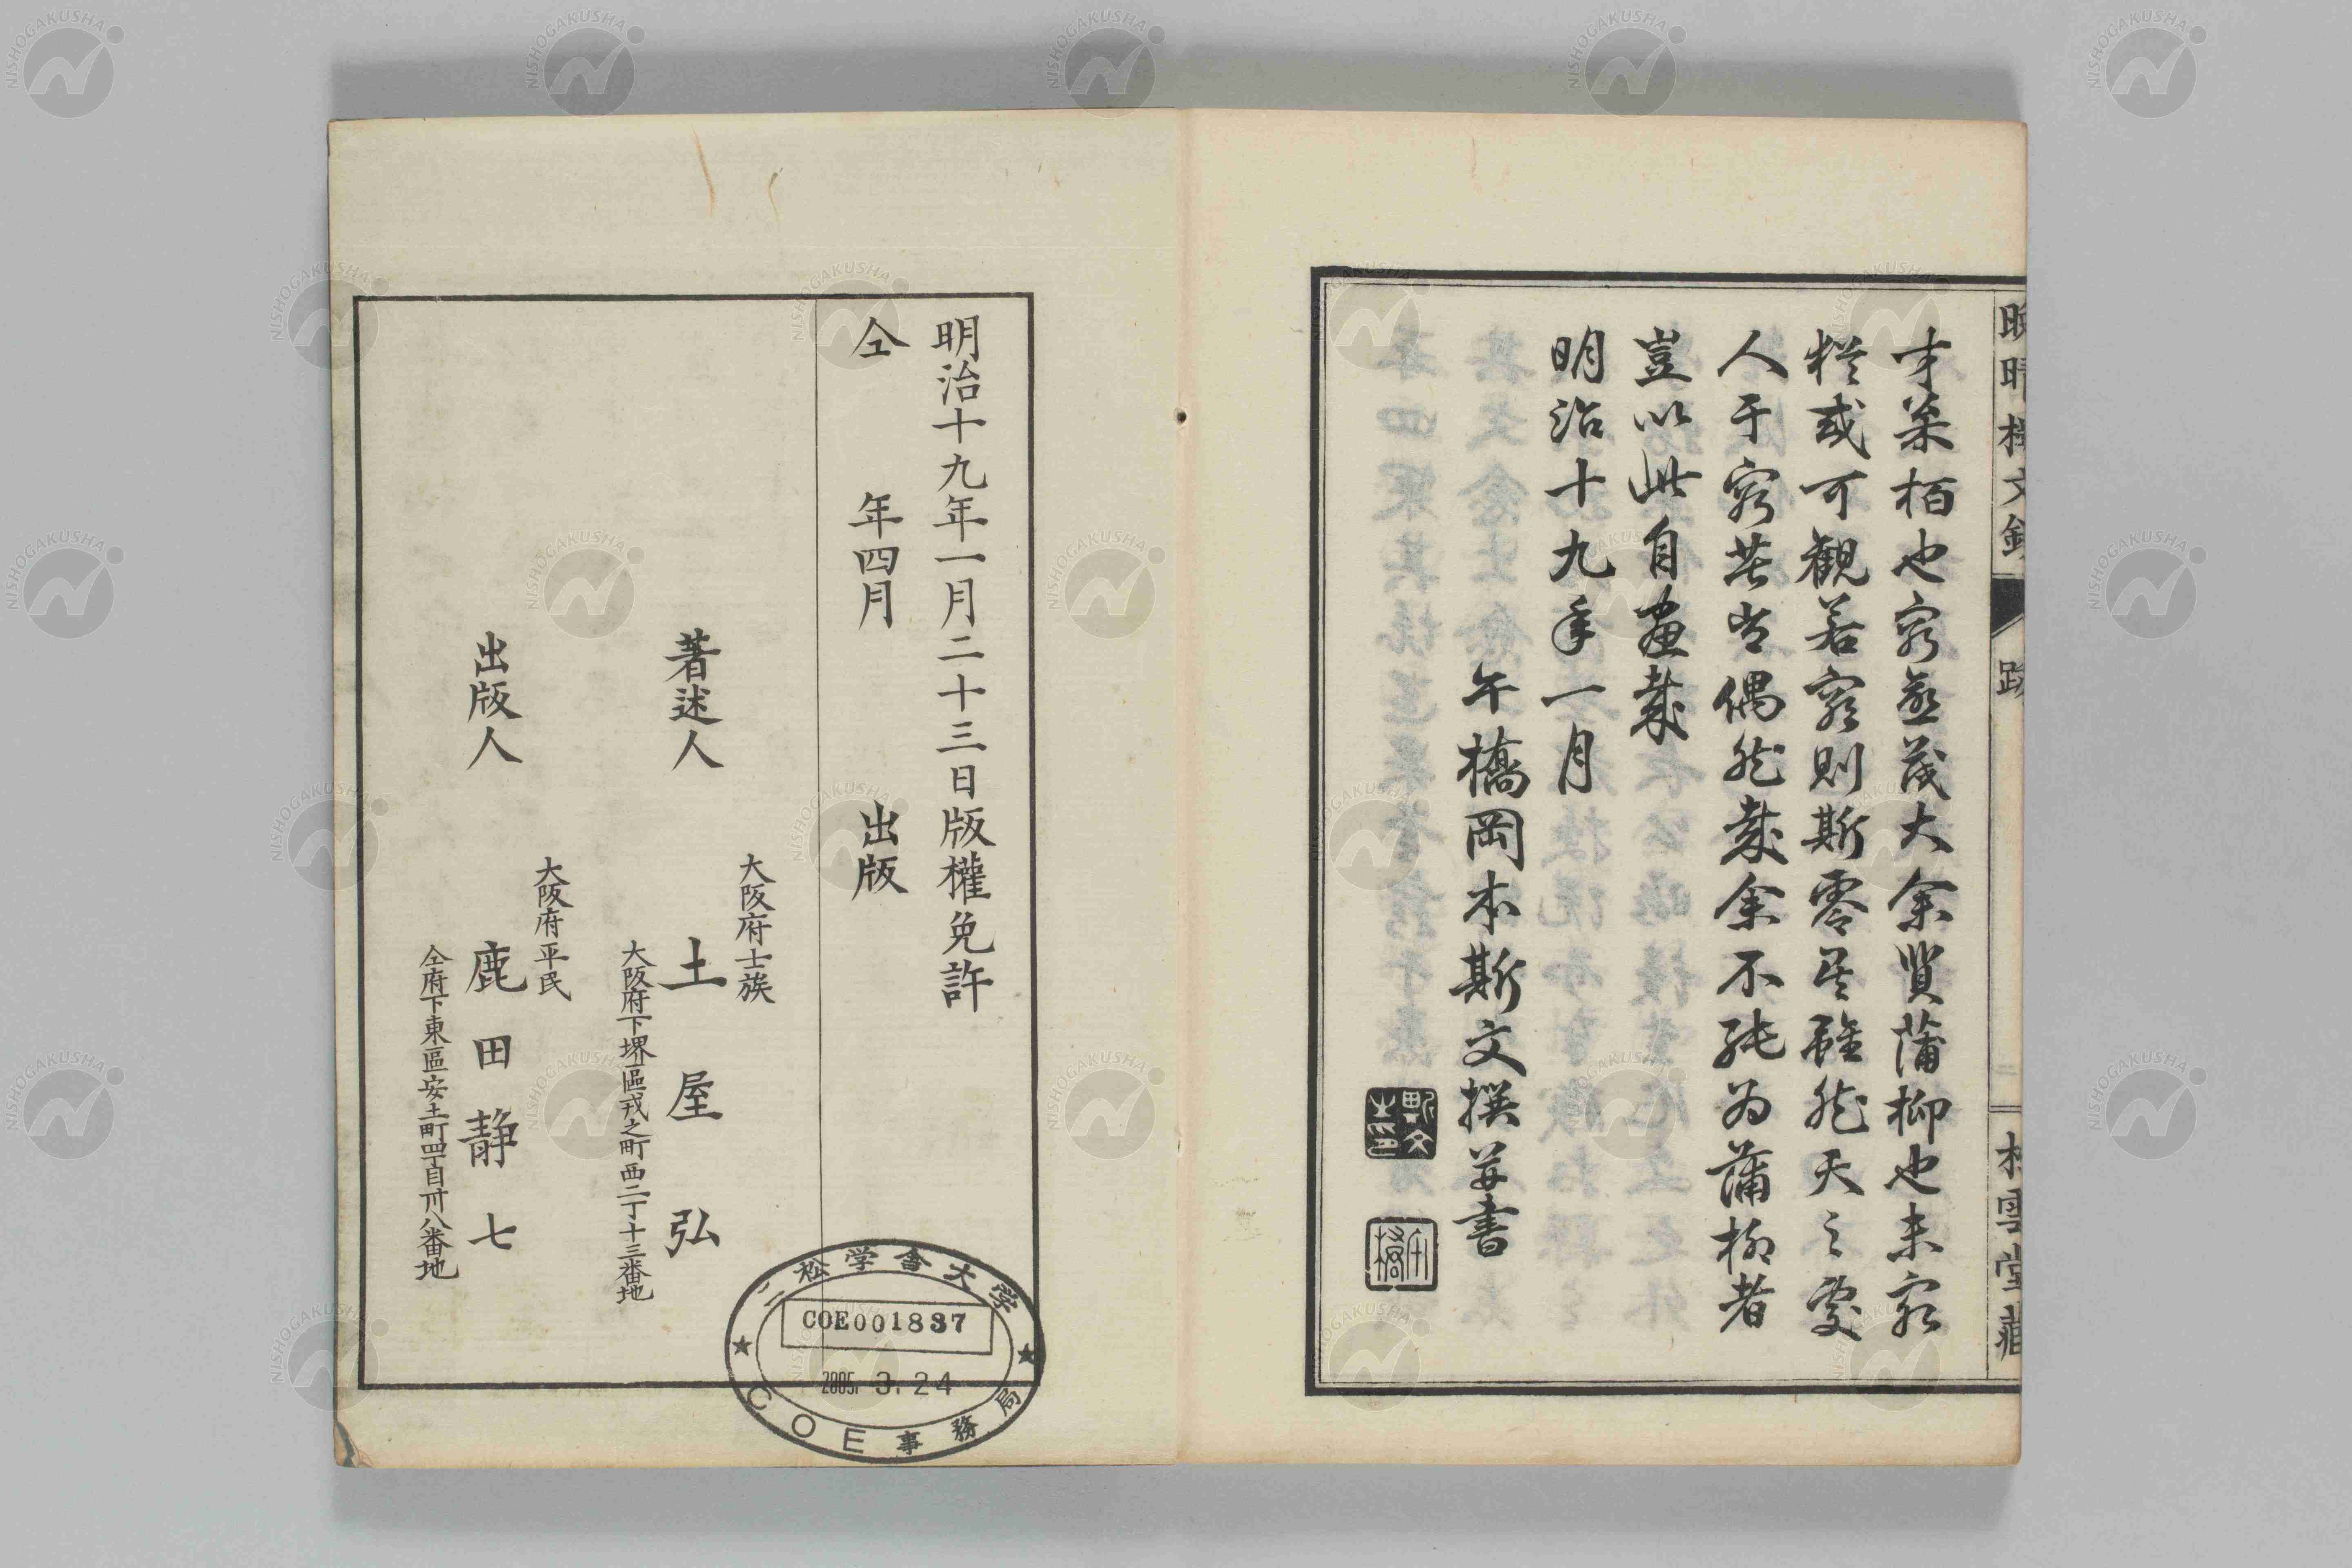 晩晴楼文鈔
跋
松雲堂蔵
才枩栢也窮益茂大余質蒲柳也未窮
猶或可觀若窮則斯零矣雖然天之處
人于窮苦豈偶然哉余不能為蒲柳者
豈以此自畫哉
明治十九年一月
午橋岡本斯文撰并書
斯文之印
午橋
明治十九年一月二十三日版權免許
仝年四月出版
大阪府士族
著述人 土屋弘
大阪府下堺區戎之町西二丁十三番地
大阪府平民
出版人 鹿田静七
仝府下東區安土町四丁目卅八番地
二松学舎大学
COE001837
2005. 3. 24
COE事務局
NISHOGAKUSHA